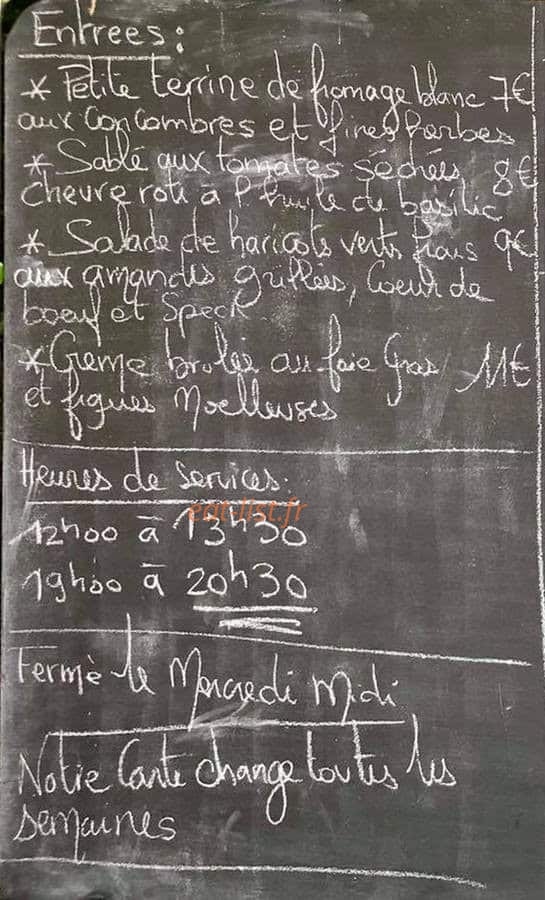 Entrees :
* Petite terrine de fromage blanc 7€
aux concombres et fines herbes
* Sablé aux tomates séchées 8€
chevre roti à l'huile de basilic
* Salade de haricots verts frais 9€
aux amandes grillées, Coeur de
boeuf et Speck
* Creme brulée au foie Gras 11€
et figues Moelleuses
Heures de Services:
eat-list.fr
12h00 à 13h30
19h00 à 20h30
Fermè le Mercredi Midi
Notre Carte change toutes les
semaines